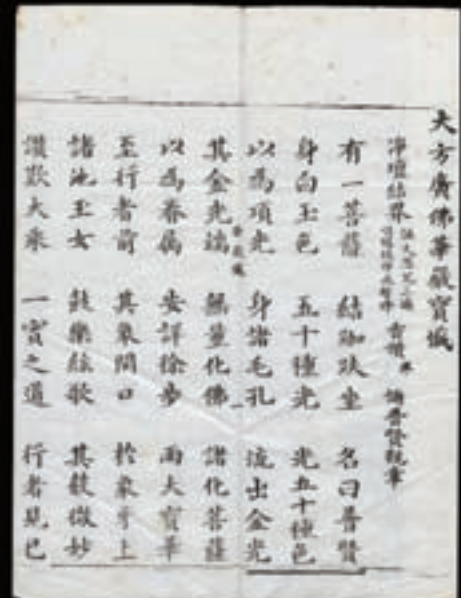 大方廣佛華嚴寶懺
淨壇結界 香讚 誦普賢觀章
有一菩薩 結跏趺坐 名曰普賢
身白玉色 五十種光 光五十種色
以為項光 身諸毛孔 流出金光
其金光端 無量化佛 諸化菩薩
以為眷屬 安詳徐步 雨大寶華
至行者前 其象開口 於象牙上
諸池玉女 鼓樂絃歌 其聲微妙
讚歎大乘 一實之道 行者見已